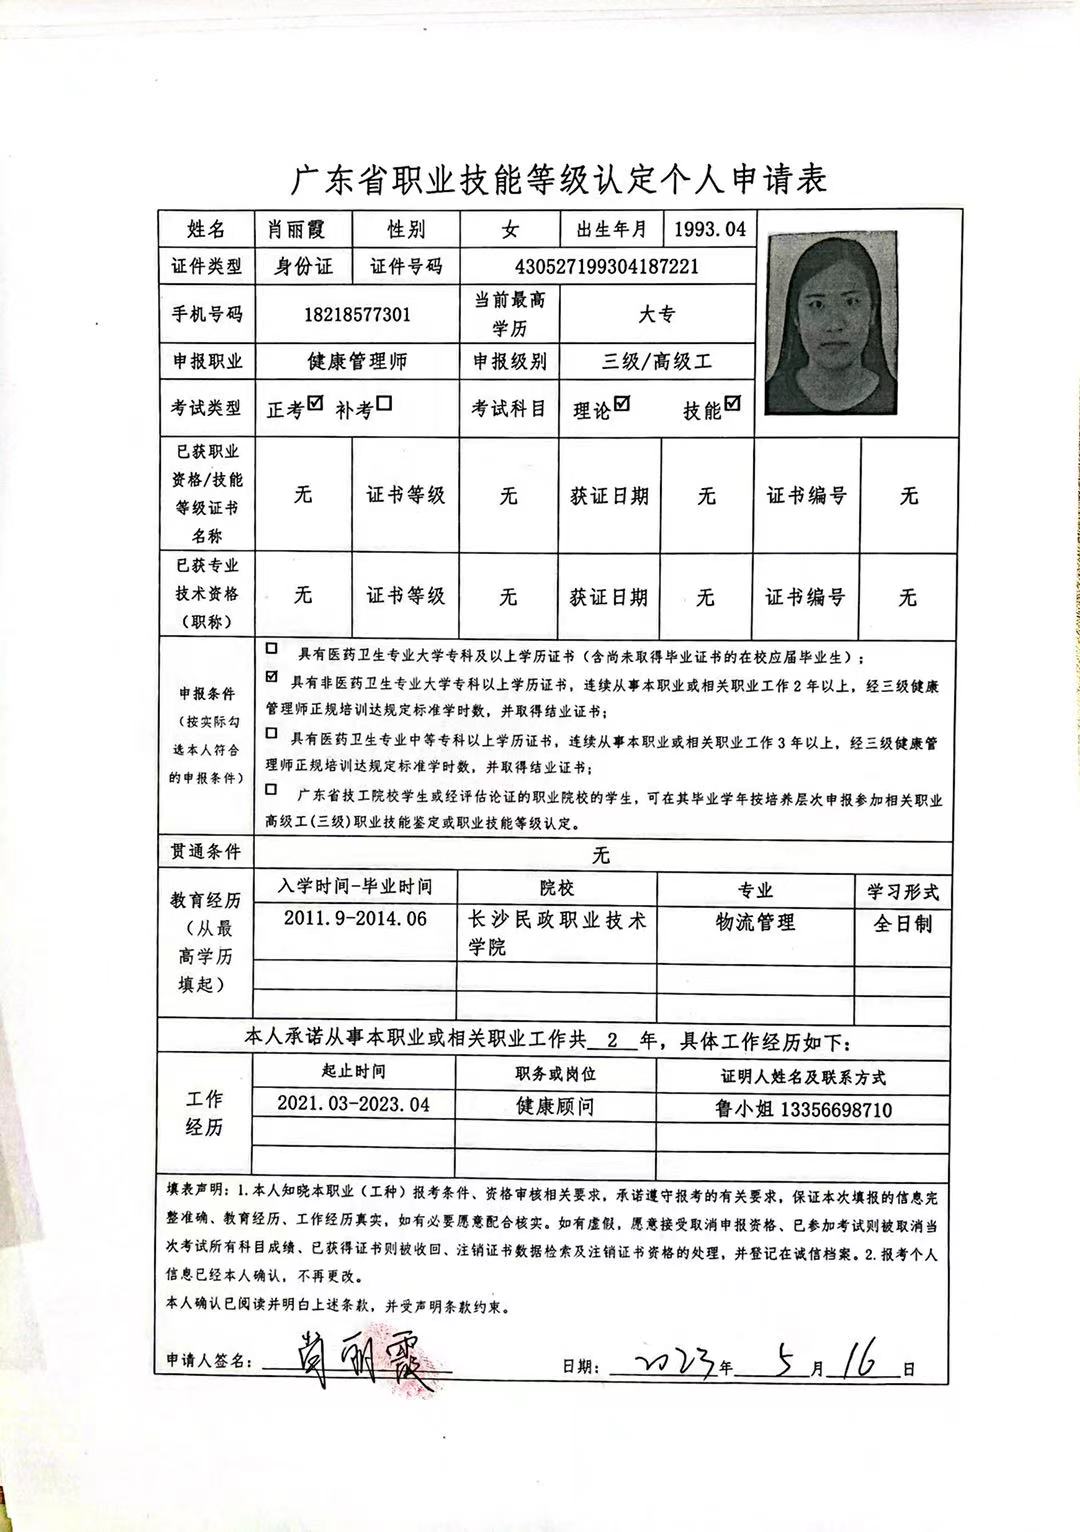 广东省职业技能等级认定个人申请表
姓名 肖丽霞 性别 女 出生年月 1993.04
证件类型 身份证 证件号码 430527199304187221
手机号码 18218577301 当前最高学历 大专
申报职业 健康管理师 申报级别 三级/高级工
考试类型 正考☑ 补考□ 考试科目 理论☑ 技能☑
已获职业资格/技能等级证书名称 无 证书等级 无 获证日期 无 证书编号 无
已获专业技术资格（职称） 无 证书等级 无 获证日期 无 证书编号 无
申报条件
（按实际勾选本人符合的申报条件）
□ 具有医药卫生专业大学专科及以上学历证书（含尚未取得毕业证书的在校应届毕业生）；
☑ 具有非医药卫生专业大学专科以上学历证书，连续从事本职业或相关职业工作2年以上，经三级健康
管理师正规培训达规定标准学时数，并取得结业证书；
□ 具有医药卫生专业中等专科以上学历证书，连续从事本职业或相关职业工作3年以上，经三级健康管
理师正规培训达规定标准学时数，并取得结业证书；
□ 广东省技工院校学生或经评估论证的职业院校的学生，可在其毕业学年按培养层次申报参加相关职业
高级工(三级)职业技能鉴定或职业技能等级认定。
贯通条件 无
教育经历（从最高学历填起）
入学时间-毕业时间 院校 专业 学习形式
2011.9-2014.06 长沙民政职业技术学院 物流管理 全日制
本人承诺从事本职业或相关职业工作共 2 年，具体工作经历如下：
工作经历
起止时间 职务或岗位 证明人姓名及联系方式
2021.03-2023.04 健康顾问 鲁小姐 13356698710
填表声明：1.本人知晓本职业（工种）报考条件、资格审核相关要求，承诺遵守报考的有关要求，保证本次填报的信息完
整准确、教育经历、工作经历真实，如有必要愿意配合核实。如有虚假，愿意接受取消申报资格、已参加考试则被取消当
次考试所有科目成绩、已获得证书则被收回、注销证书数据检索及注销证书资格的处理，并登记在诚信档案。2.报考个人
信息已经本人确认，不再更改。
本人确认已阅读并明白上述条款，并受声明条款约束。
申请人签名： 肖丽霞 日期： 2023 年 5 月 16 日